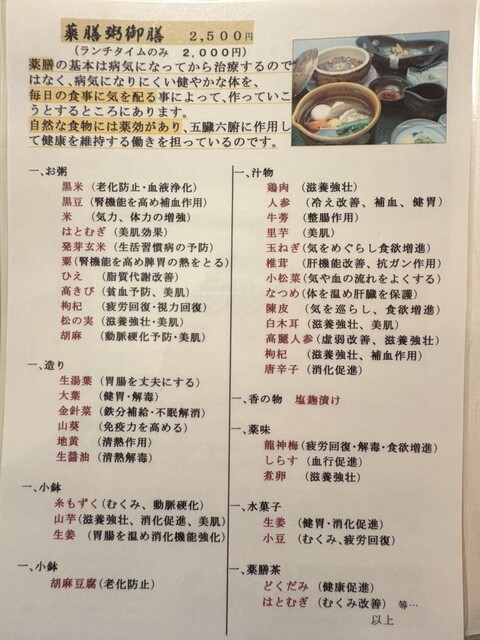 薬膳粥御膳 2,500円
(ランチタイムのみ 2,000円)
薬膳の基本は病気になってから治療するので
はなく、病気になりにくい健やかな体を、
毎日の食事に気を配る事によって、作っていこ
うとするところにあります。
自然な食物には薬効があり、五臓六腑に作用し
て健康を維持する働きを担っているのです。
一、お粥
黒米 (老化防止・血液浄化)
黒豆 (腎機能を高め補血作用)
米 (気力、体力の増強)
はとむぎ (美肌効果)
発芽玄米 (生活習慣病の予防)
粟 (腎機能を高め脾胃の熱をとる)
ひえ (脂質代謝改善)
高きび (貧血予防、美肌)
枸杞 (疲労回復・視力回復)
松の実 (滋養強壮・美肌)
胡麻 (動脈硬化予防・美肌)
一、造り
生湯葉 (胃腸を丈夫にする)
大葉 (健胃・解毒)
金針菜 (鉄分補給・不眠解消)
山葵 (免疫力を高める)
地黄 (清熱作用)
生醤油 (清熱解毒)
一、小鉢
糸もずく (むくみ、動脈硬化)
山芋 (滋養強壮、消化促進、美肌)
生姜 (胃腸を温め消化機能強化)
一、小鉢
胡麻豆腐 (老化防止)
一、汁物
鶏肉 (滋養強壮)
人参 (冷え改善、補血、健胃)
牛蒡 (整腸作用)
里芋 (美肌)
玉ねぎ (気をめぐらし食欲増進)
椎茸 (肝機能改善、抗ガン作用)
小松菜 (気や血の流れをよくする)
なつめ (体を温め肝臓を保護)
陳皮 (気を巡らし、食欲増進)
白木耳 (滋養強壮、美肌)
高麗人参 (虚弱改善、滋養強壮)
枸杞 (滋養強壮、補血作用)
唐辛子 (消化促進)
一、香の物 塩麹漬け
一、薬味
龍神梅 (疲労回復・解毒・食欲増進)
しらす (血行促進)
煮卵 (滋養強壮)
一、水菓子
生姜 (健胃・消化促進)
小豆 (むくみ、疲労回復)
一、薬膳茶
どくだみ (健康促進)
はとむぎ (むくみ改善) 等…
以上